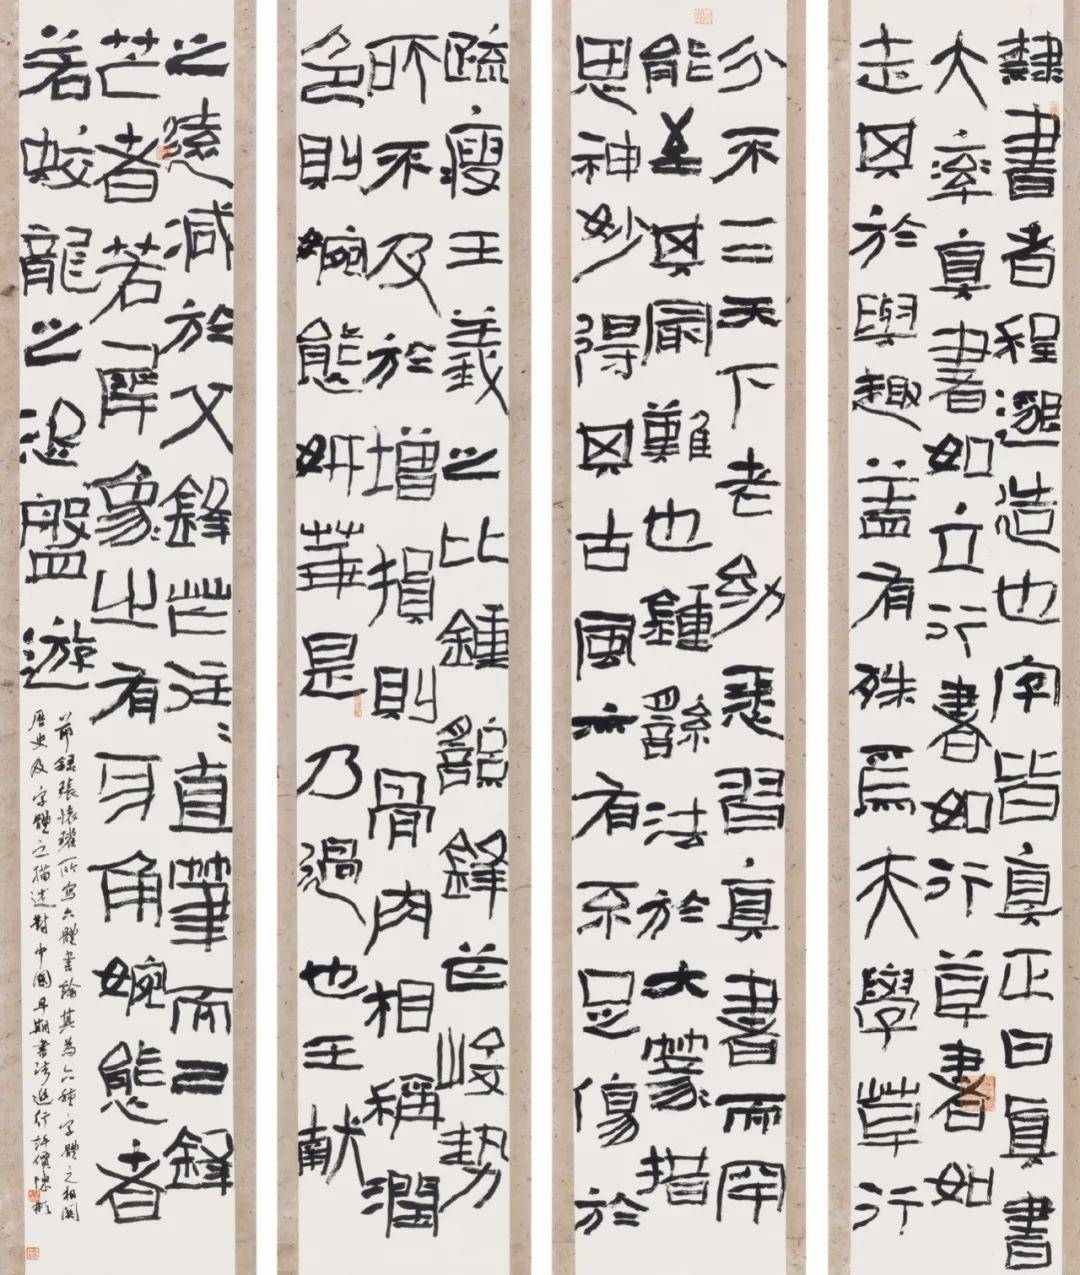 隸書者程邈造也字皆真正曰真書
大率真書如立行書如行草書如
走其於舉趣盖有殊焉夫學草行
分不一二天下老幼悉習真書而罕
能至其最難也鍾繇法於大篆措
思神妙得其古風亦有不足傷於
疏瘦王羲之比鍾繇鋒芒峻勢
所不及於增損則骨肉相稱潤
色則婉態妍華是乃過也王献
之遠減於父鋒芒往〻直筆而已鋒
芒者若犀象之有牙角婉態者
若蛟龍之恣盤遊
節録張懷瓘所寫六體書論其為六種字體之相関
歷史及字體之描述對中國早期書法進行評價陳